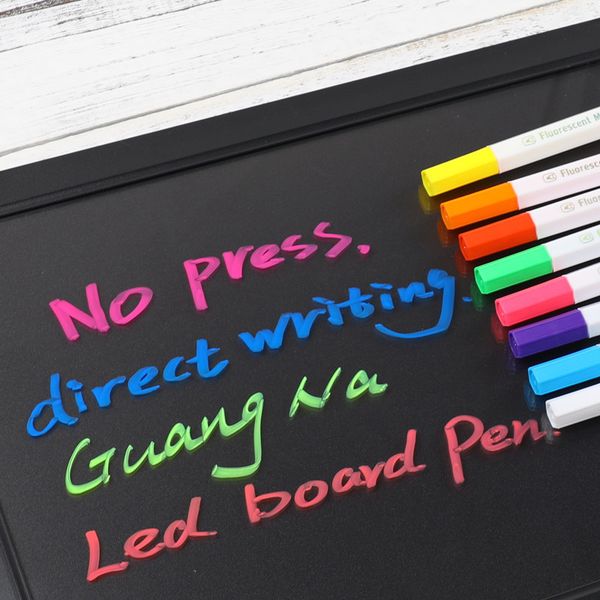 No press.
direct writing.
Guang Na
Led board Pen.
Fluorescent M
Fluoresc
Fluo